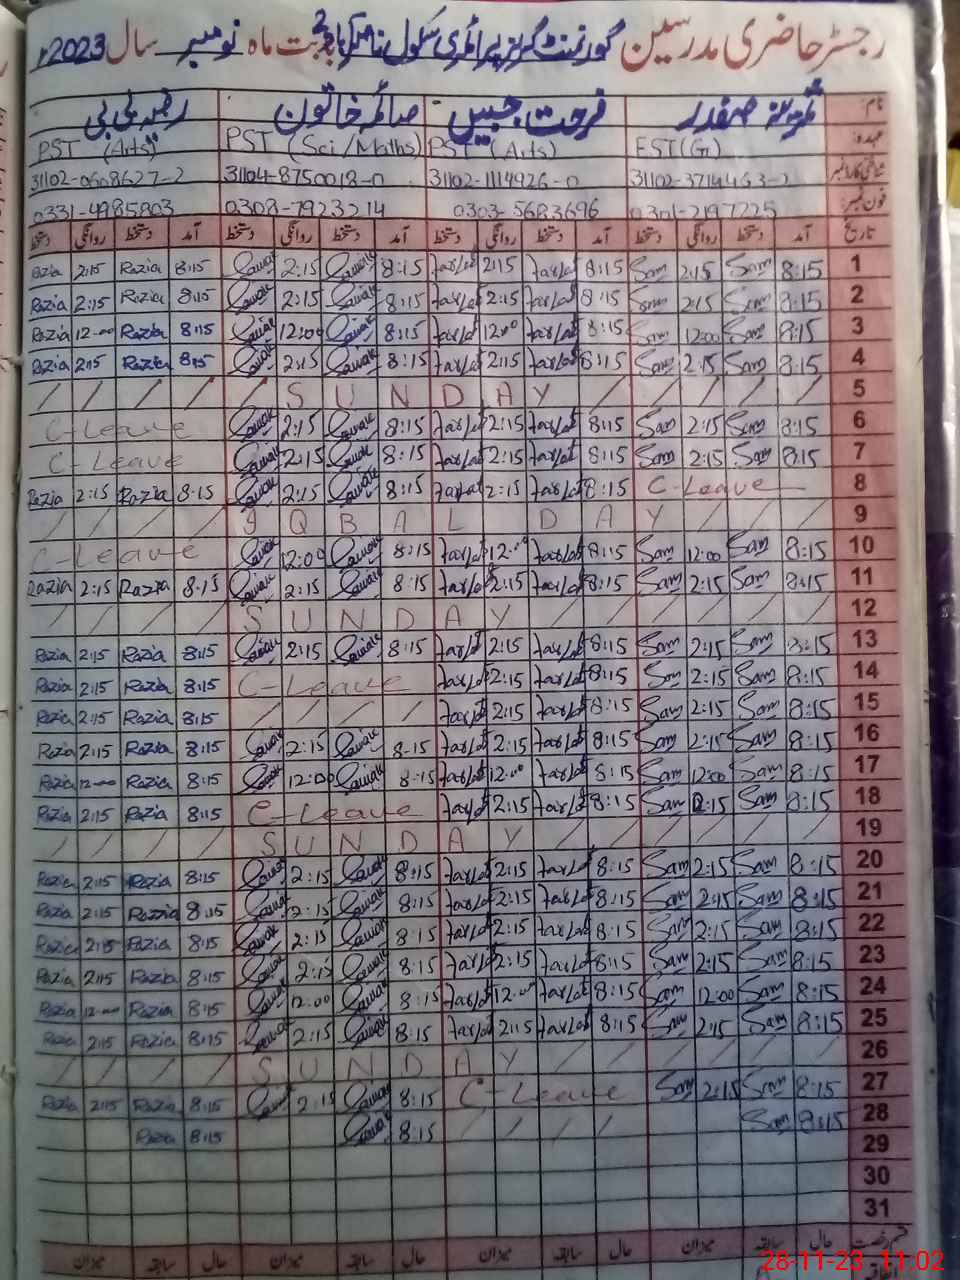 رجسٹر حاضری مدرسین گورنمنٹ گرلز پرائمری سکول بابت ماہ نومبر سال 2023ء
نام: صفدر فرحت جبیں صائمہ خاتون رضیہ بی بی
عہدہ: EST(G) PST (Arts) PST (Sci/Maths) PST (Arts)
شناختی کارڈ نمبر 31102-3714463-2 31102-1114926-0 31104-8750018-0 31102-0608627-2
فون نمبر: 0301-2197225 0303-5683696 0308-7923214 0331-4985803
تاریخ آمد دستخط روانگی دستخط آمد دستخط روانگی دستخط آمد دستخط روانگی دستخط آمد دستخط روانگی دستخط
1 8:15 Sam 2:15 Sam 8:15 2:15 8:15 2:15 8:15 Razia 2:15 Razia
2 8:15 Sam 2:15 Sam 8:15 2:15 8:15 2:15 8:15 Razia 2:15 Razia
3 8:15 Sam 12:00 Sam 8:15 12:00 8:15 12:00 8:15 Razia 12:00 Razia
4 8:15 Sam 2:15 Sam 8:15 2:15 8:15 2:15 8:15 Razia 2:15 Razia
5 SUNDAY
6 8:15 Sam 2:15 Sam 8:15 2:15 8:15 2:15 C-Leave
7 8:15 Sam 2:15 Sam 8:15 2:15 8:15 2:15 C-Leave
8 C-Leave 8:15 2:15 8:15 2:15 8:15 Razia 2:15 Razia
9 IQBAL DAY
10 8:15 Sam 12:00 Sam 8:15 12:00 8:15 12:00 C-Leave
11 8:15 Sam 2:15 Sam 8:15 2:15 8:15 2:15 8:15 Razia 2:15 Razia
12 SUNDAY
13 8:15 Sam 2:15 Sam 8:15 2:15 8:15 2:15 8:15 Razia 2:15 Razia
14 8:15 Sam 2:15 Sam 8:15 2:15 C-Leave 8:15 Razia 2:15 Razia
15 8:15 Sam 2:15 Sam 8:15 2:15 8:15 Razia 2:15 Razia
16 8:15 Sam 2:15 Sam 8:15 2:15 8:15 2:15 8:15 Razia 2:15 Razia
17 8:15 Sam 12:00 Sam 8:15 12:00 8:15 12:00 8:15 Razia 12:00 Razia
18 8:15 Sam 2:15 Sam 8:15 2:15 C-Leave 8:15 Razia 2:15 Razia
19 SUNDAY
20 8:15 Sam 2:15 Sam 8:15 2:15 8:15 2:15 8:15 Razia 2:15 Razia
21 8:15 Sam 2:15 Sam 8:15 2:15 8:15 2:15 8:15 Razia 2:15 Razia
22 8:15 Sam 2:15 Sam 8:15 2:15 8:15 2:15 8:15 Razia 2:15 Razia
23 8:15 Sam 2:15 Sam 8:15 2:15 8:15 2:15 8:15 Razia 2:15 Razia
24 8:15 Sam 12:00 Sam 8:15 12:00 8:15 12:00 8:15 Razia 12:00 Razia
25 8:15 Sam 2:15 Sam 8:15 2:15 8:15 2:15 8:15 Razia 2:15 Razia
26 SUNDAY
27 8:15 Sam 2:15 Sam C-Leave 8:15 2:15 8:15 Razia 2:15 Razia
28 8:15 Sam 8:15 8:15 Razia
29
30
31
قسم رخصت حال سابقہ میزان حال سابقہ میزان حال سابقہ میزان حال سابقہ میزان
28-11-23 11:02